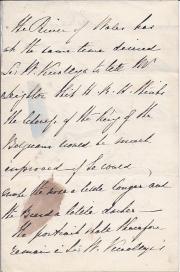 The Prince of Wales has
at the same time desired
Sir W. Knollys to tell Mr
Leighton that H. R. H. thinks
the likeness of the King of the
Belgians would be much
improved if he could
make the nose a little longer and
the Beard a little darker —
The portrait state therefore
remain in Sir W. Knollys's